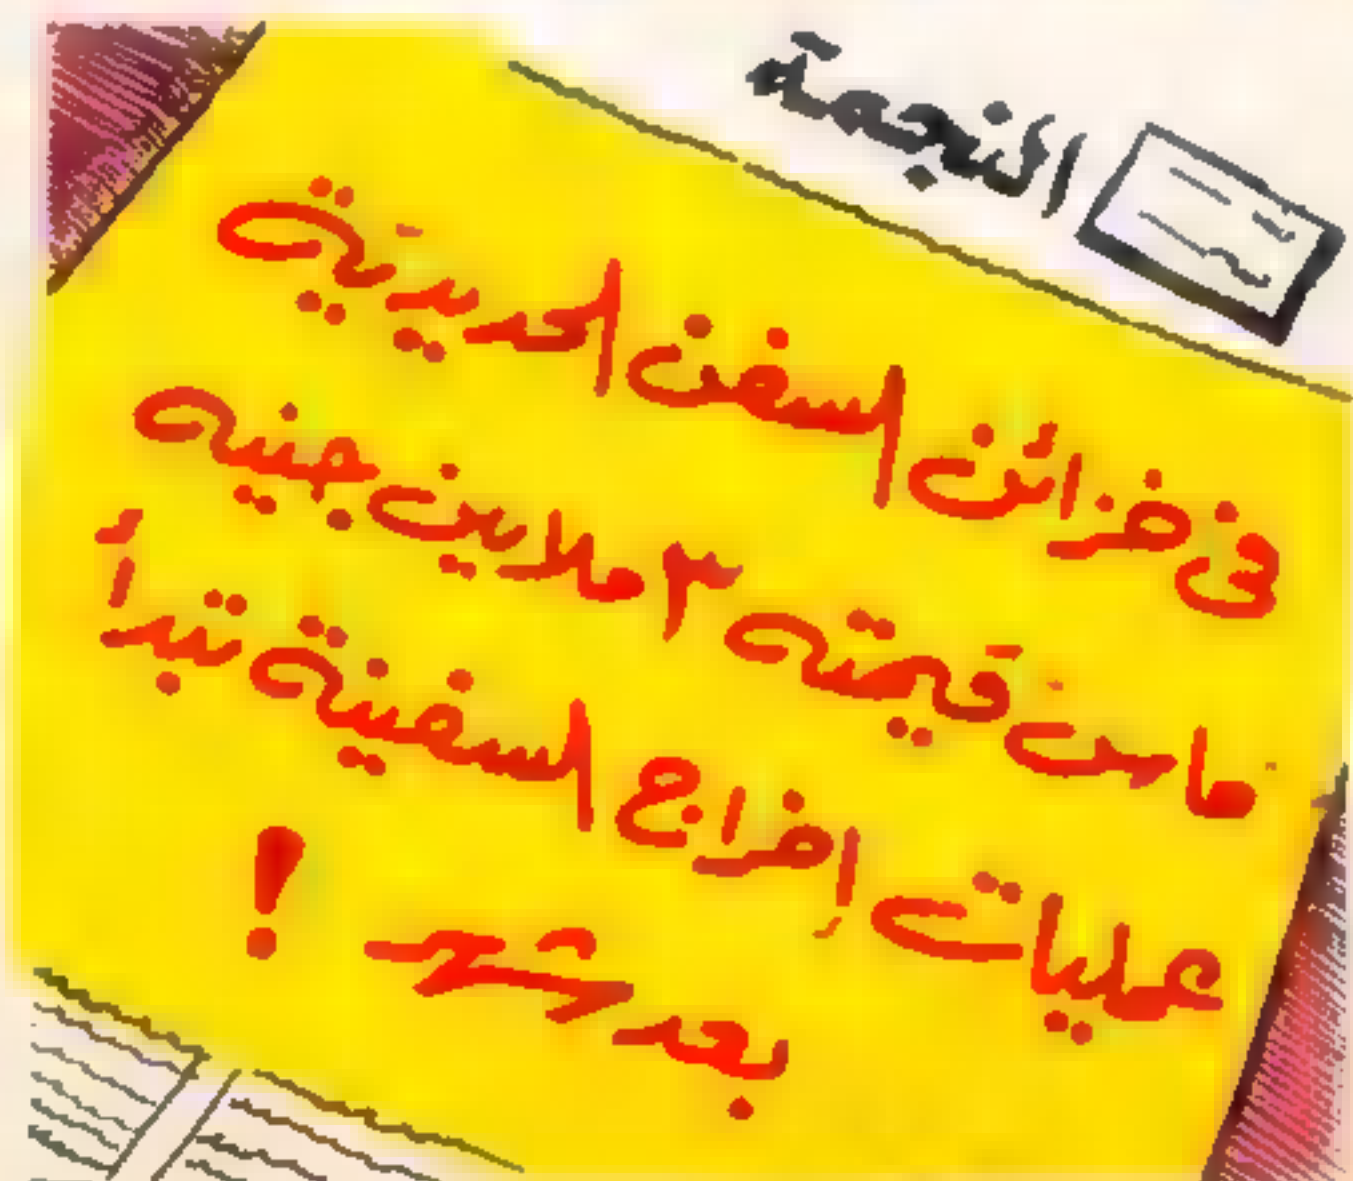 النجمة
فى خزائن السفن الحديدية
ماس قيمته ٣ ملايين جنيه
عمليات إخراج السفينة تبدأ
بعد شهر !